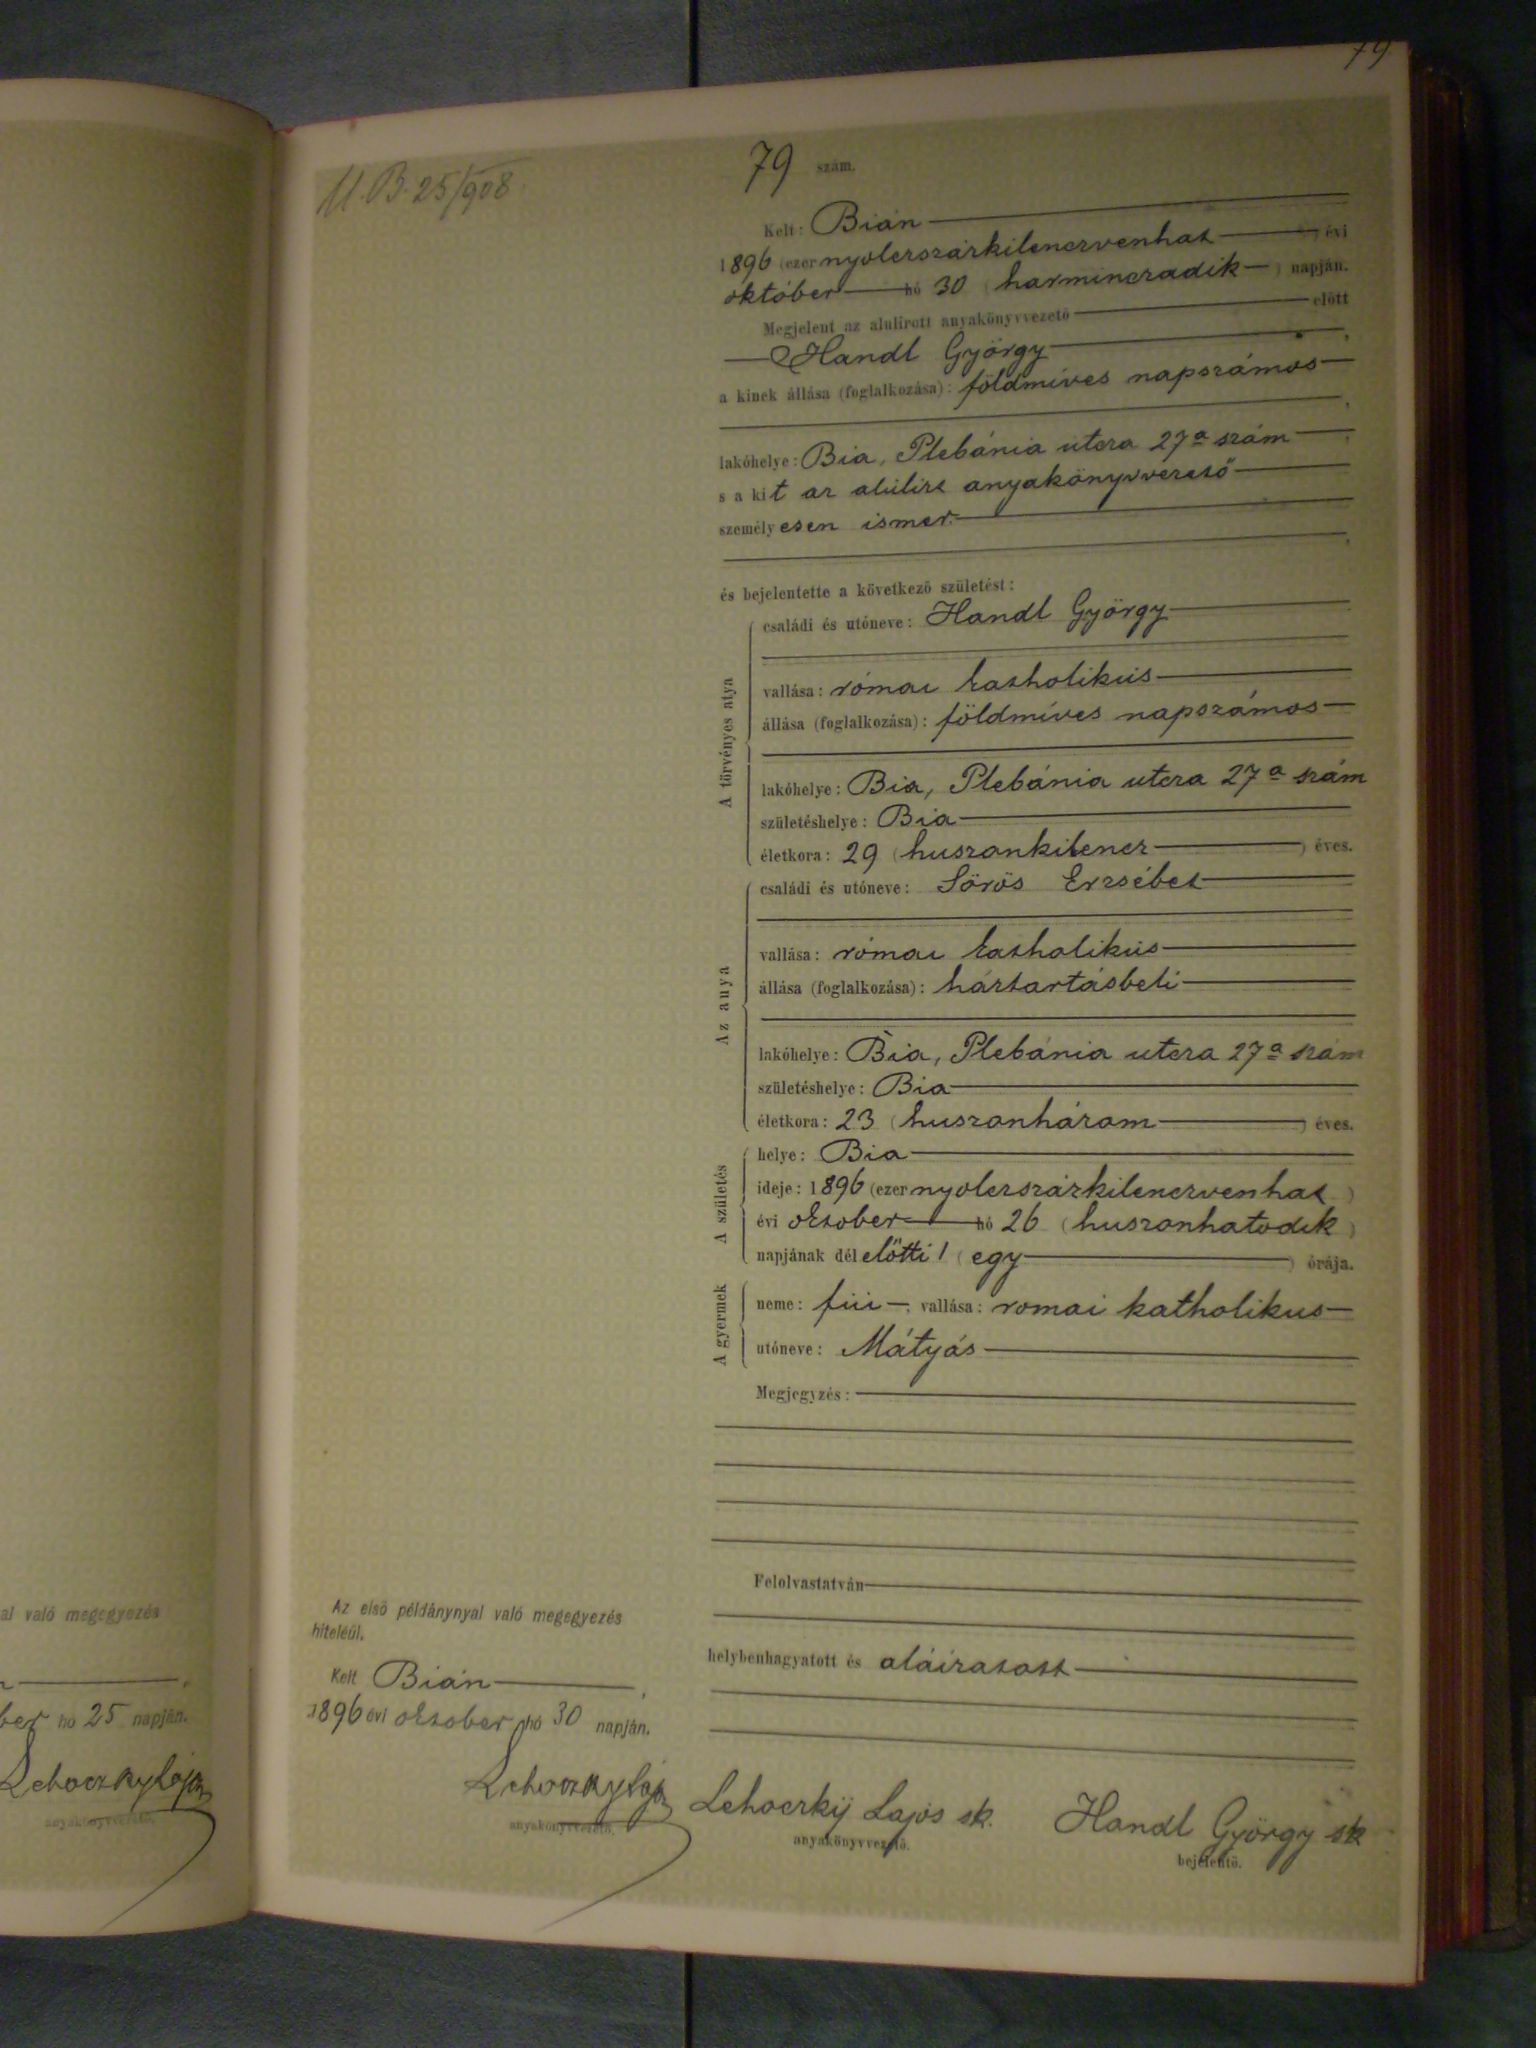 79
U. B. 25/908
79 szám.
Kelt: Bián
1896 (ezer nyolcszázkilencvenhat ) évi
október hó 30 ( harmincadik ) napján.
Megjelent az alulirott anyakönyvvezető előtt
Handl György ,
a kinek állása (foglalkozása): földmíves napszámos
,
lakóhelye: Bia, Plebánia utcza 27a szám ,
s a kit az alulirt anyakönyvvezető
személyesen ismer.
,
és bejelentette a következő születést:
A törvényes atya
családi és utóneve: Handl György
vallása: római katholikus
állása (foglalkozása): földmíves napszámos
lakóhelye: Bia, Plebánia utcza 27a szám
születéshelye: Bia
életkora: 29 ( huszonkilencz ) éves.
Az anya
családi és utóneve: Sörös Erzsébet
vallása: római katholikus
állása (foglalkozása): háztartásbeli
lakóhelye: Bia, Plebánia utcza 27a szám
születéshelye: Bia
életkora: 23 ( huszonhárom ) éves.
A születés
helye: Bia
ideje: 1896 (ezer nyolczszázkilenczvenhat )
évi október hó 26 ( huszonhatodik )
napjának dél előtti 1 ( egy ) órája.
A gyermek
neme: fiú ; vallása: romai katholikus
utóneve: Mátyás
Megjegyzés:
Felolvastatván
helybenhagyatott és aláiratott
Az első példánynyal való megegyezés
hiteléül.
Kelt Bián ,
1896 évi október hó 30 napján.
Lehoczky Lajos
anyakönyvvezető.
Lehoczky Lajos sk.
anyakönyvvezető.
Handl György sk
bejelentő.
al való megegyezés
,
ber hó 25 napján.
Lehoczky Lajos
anyakönyvvezető.